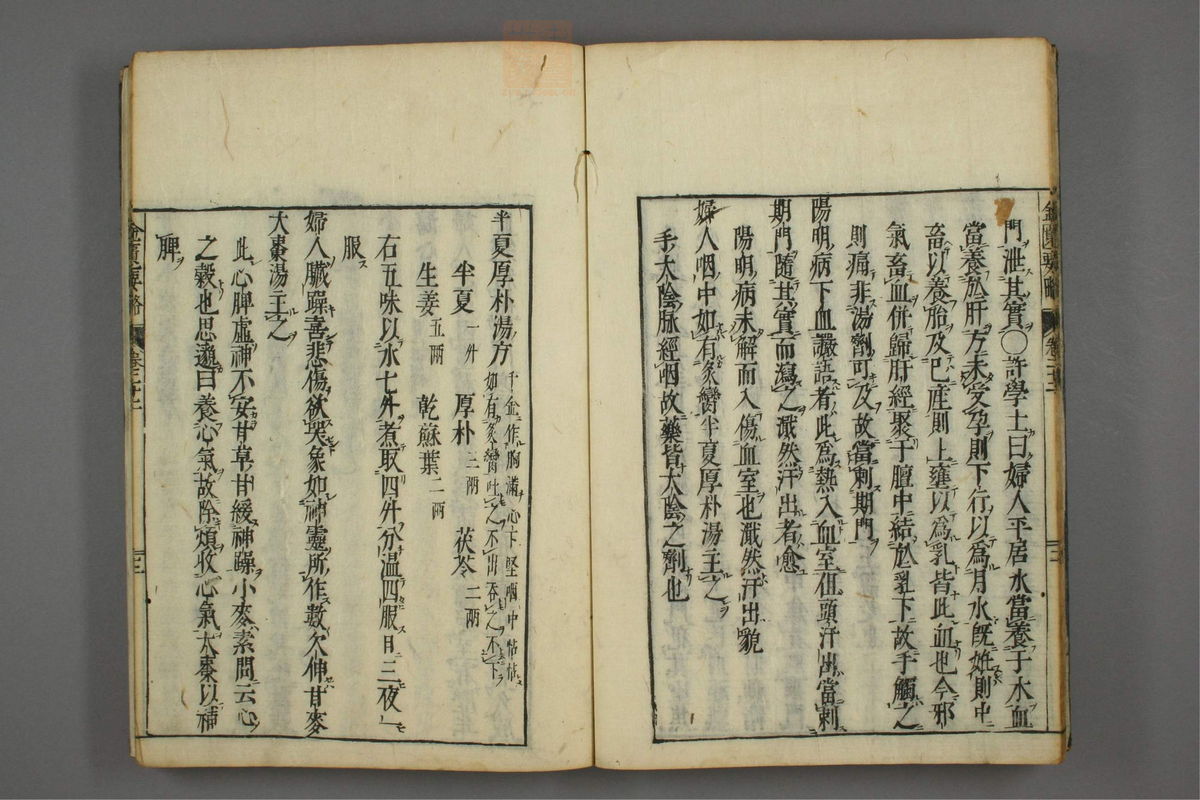 門泄其實○許學士曰婦人平居水當養于木血
當養於肝方未受孕則下行以為月水既姙則中
畜以養胎及已産則上壅以為乳皆此血也今邪
氣畜血併歸肝經聚于膻中結於乳下故手觸之
則痛非湯劑可及故當刺期門
陽明病下血讝語者此為熱入血室但頭汗出當刺
期門隨其實而瀉之濈然汗出者愈
陽明病未解而入傷血室也濈然汗出貌
婦人咽中如有炙臠半夏厚朴湯主之
手太陰脉經咽故藥皆太陰之劑也
半夏厚朴湯方 千金作胸滿心下堅咽中帖帖
如有炙臠吐之不出吞之不下
半夏 一升 厚朴 三兩 茯苓 二兩
生姜 五兩 乾蘇葉 二兩
右五味以水七升煮取四升分温四服日三夜一
服
婦人臟躁喜悲傷欲哭象如神靈所作數欠伸甘麥
大棗湯主之
此心脾虛神不安甘草甘緩神躁小麥素問云心
之穀也思邈曰養心氣故除煩收心氣大棗以補
脾